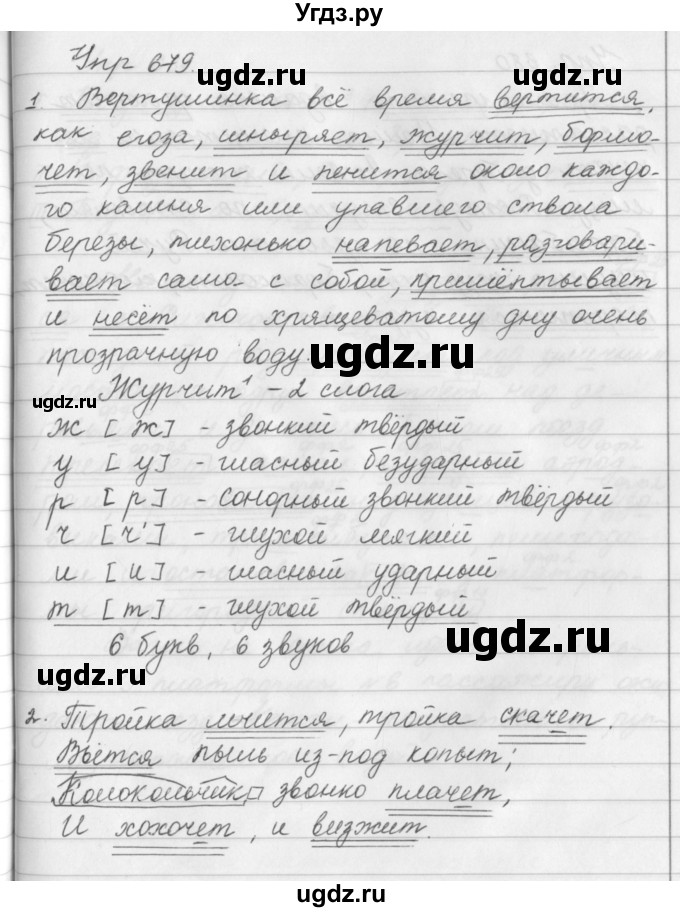 Угдз.ру
Упр 679.
1. Вертушинка всё время вертится,
как егоза, шныряет, журчит, бормо-
чет, звенит и пенится около каждо-
го камня или упавшего ствола
березы, тихонько напевает, разговари-
вает само с собой, пришёптывает
и несёт по хрящеватому дну очень
прозрачную воду
Журчит¹ – 2 слога
ж [ж] - звонкий твёрдый
у [у] - гласный безударный
р [р] - сонорный звонкий твёрдый
ч [ч'] - глухой мягкий
и [и] - гласный ударный
т [т] - глухой твёрдый
6 букв, 6 звуков
2. Тройка мчится, тройка скачет,
Вьётся пыль из-под копыт;
Колокольчик звонко плачет,
И хохочет, и визжит.
ugdz.ru
ugdz.ru
ugdz.ru
ugdz.ru
ugdz.ru
ugdz.ru
ugdz.ru
ugdz.ru
ugdz.ru
ugdz.ru